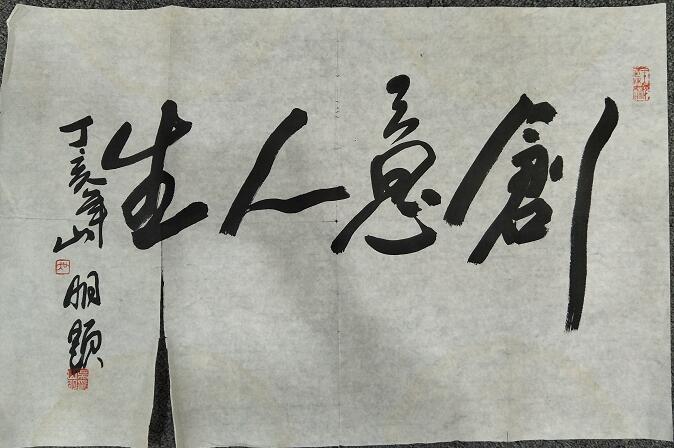 創意人生
丁亥年山
朋題